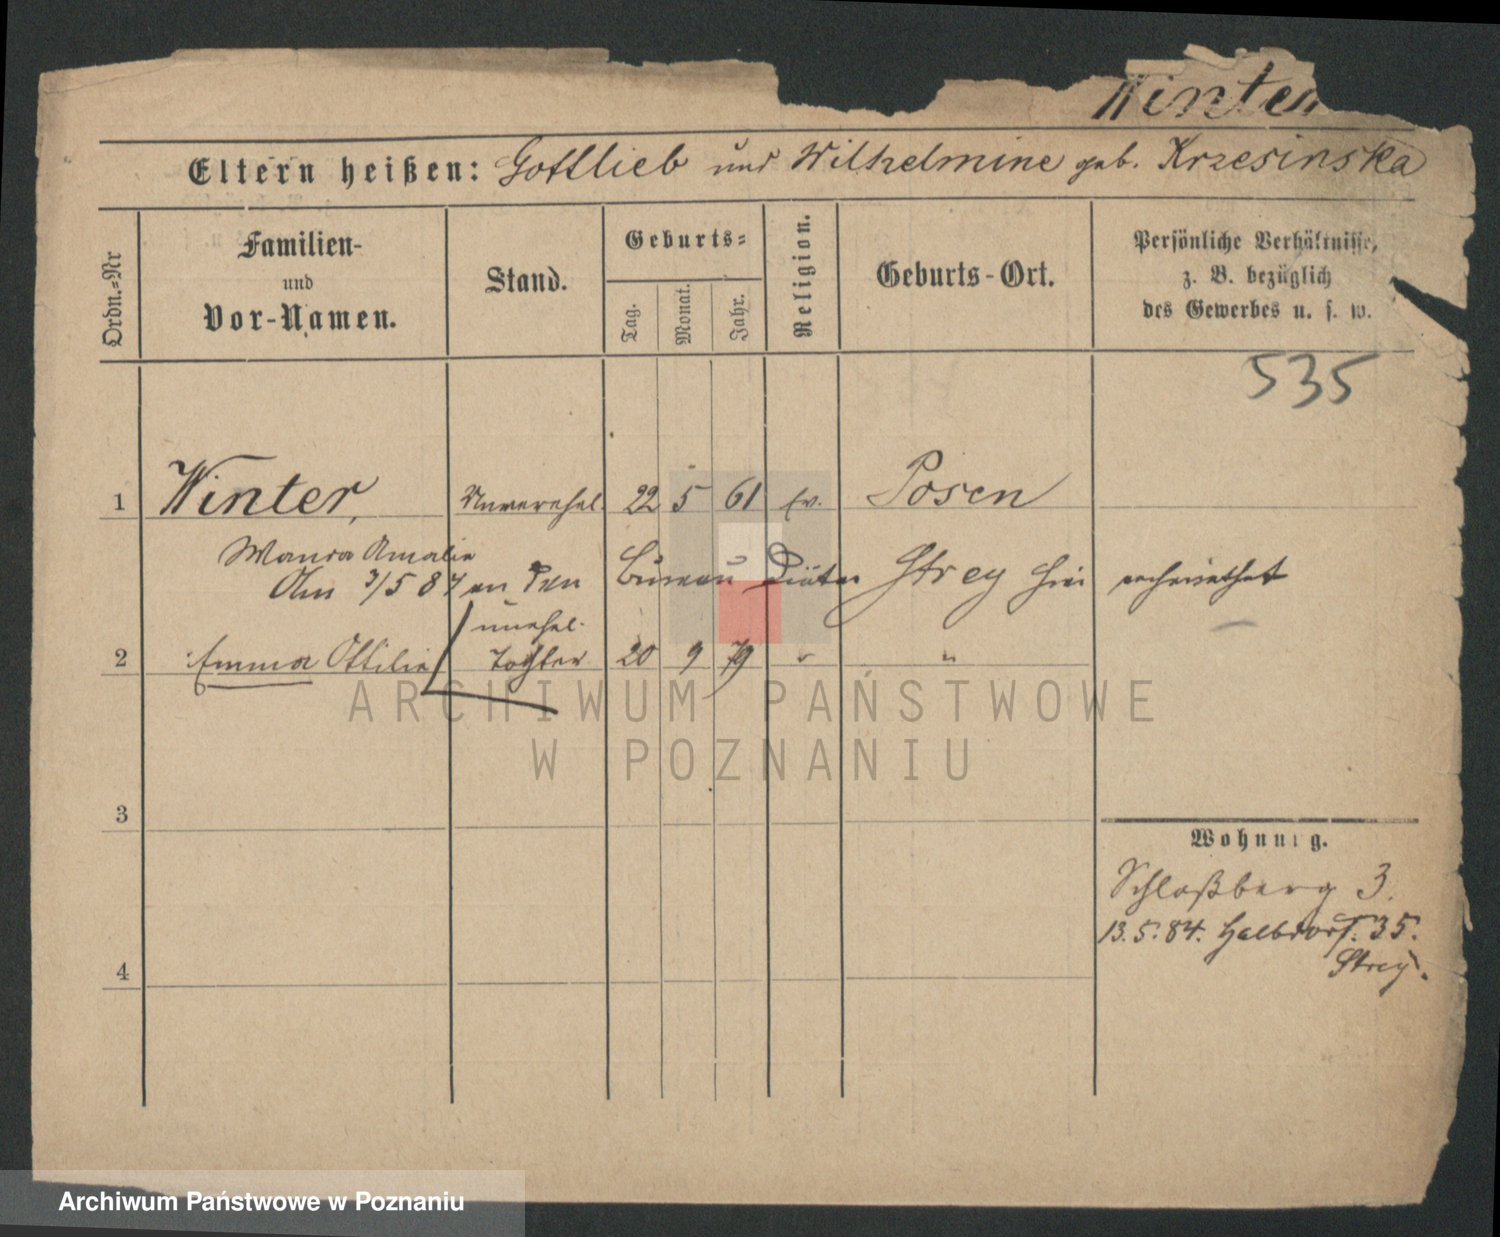 Winter
Eltern heißen: Gottlieb und Wilhelmine geb. Krzesinska
Ordn.=Nr
Familien-
und
Vor-Namen.
Stand.
Geburts=
Tag.
Monat.
Jahr.
Religion.
Geburts-Ort.
Persönliche Verhältnisse,
z. B. bezüglich
des Gewerbes u. s. w.
535
1 Winter, Unverehel. 22 5 61 ev. Posen
Wanda Amalie
Am 3/5 87 an den Bureau Diätar Strey hier verheirathet
unehel.
2 Emma Ottilie Tochter 20 9 79 " "
ARCHIWUM PAŃSTWOWE
W POZNANIU
3
Wohnung.
Schloßberg 3.
13.5.84. Halbdorf. 35.
Strey.
4
Archiwum Państwowe w Poznaniu